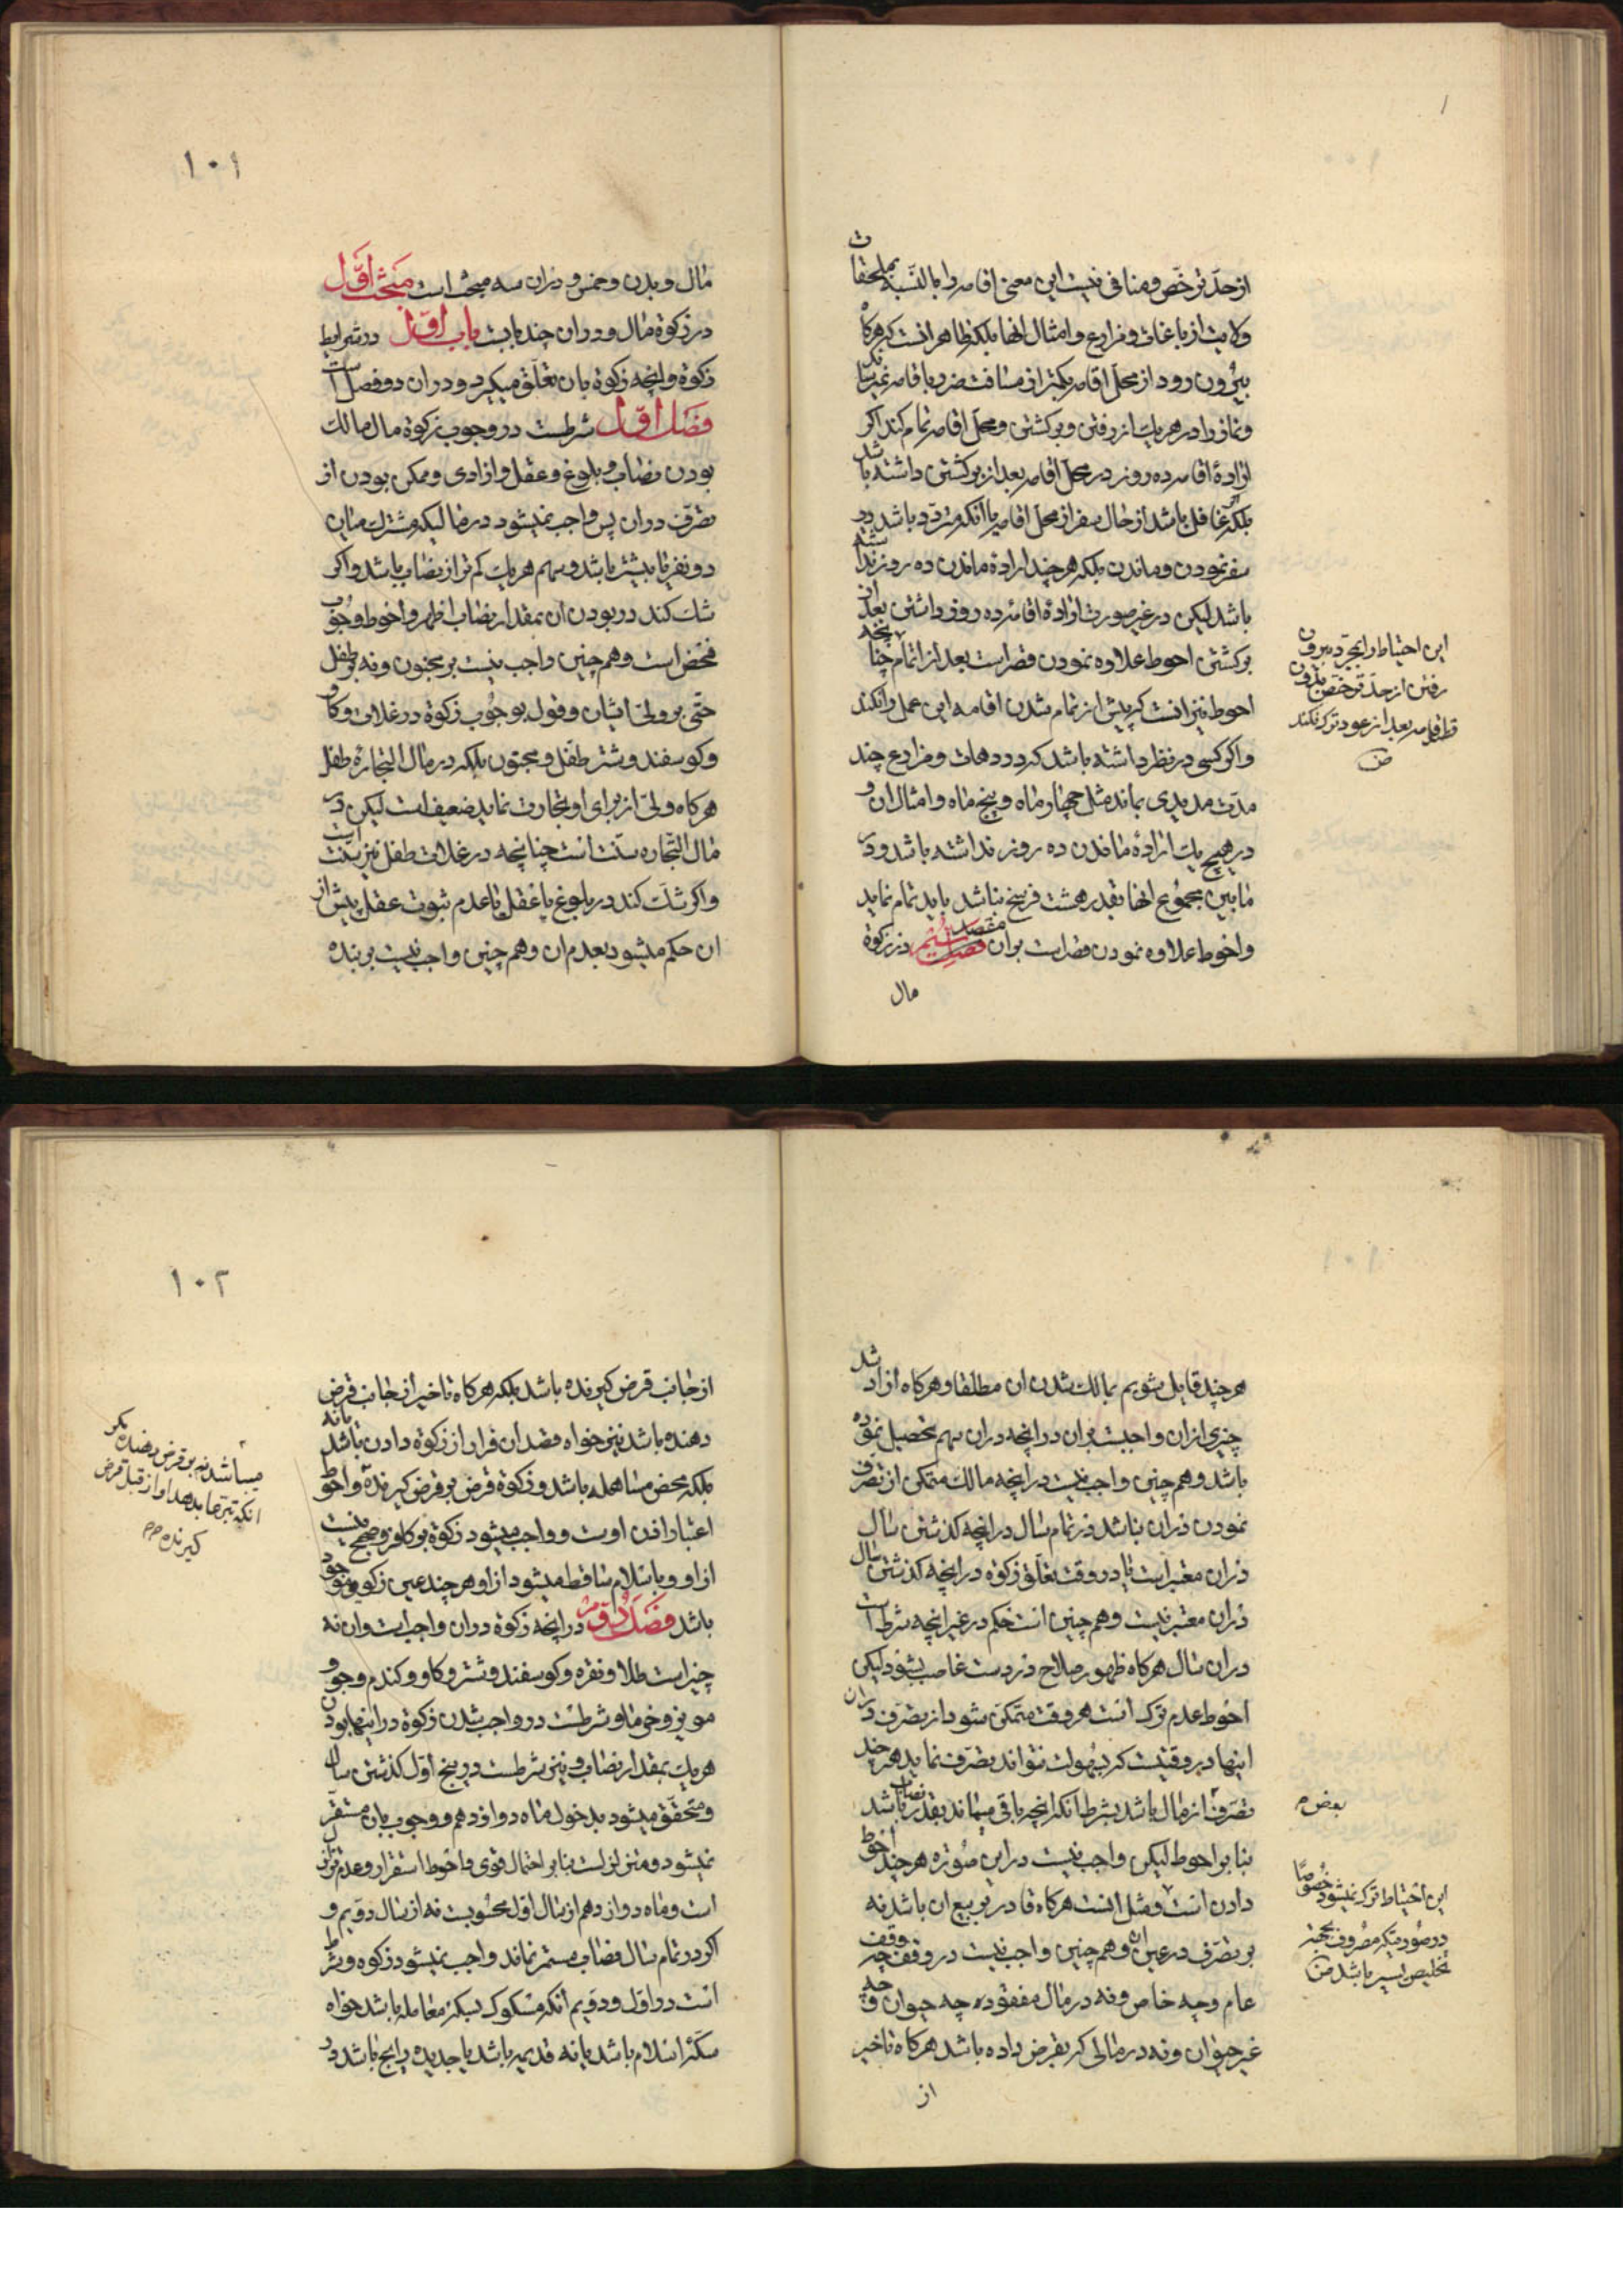 از حد ترخص و منافی نیست این معنی اقامه را بالنسبه بملحقات
ولایت از باغات و مزارع و امثال انها بلکه ظاهر انست که هرگاه
بیرون رود از محل اقامه بکمتر از مسافت ضرر باقامه نمیرساند
و نماز را در هر یک از رفتن و برکشتن و محل اقامه تمام کند اکر
ارادهٔ اقامه ده روز در محل اقامه بعد از برکشتن داشته باشد
بلکه غافل باشد از حال سفر از محل اقامه یا انکه متردد باشد در
سفر نمودن و ماندن بلکه هر چند ارادهٔ ماندن ده روز نداشته
باشد لیکن در غیر صورت ارادهٔ اقامهٔ ده روز داشتن بعد از
برکشتن احوط علاوه نمودن قصر است بعد از اتمام چنانچه
احوط نیز انست که پیش از تمام شدن اقامه این عمل را نکند
و اکر کسی در نظر داشته باشد که در دهات و مزارع چند
مدت مدیدی بماند مثل چهار ماه و پنج ماه و امثال ان و
در هیچ یک ارادهٔ ماندن ده روز نداشته باشد و در
مابین مجموع انها بقدر هشت فرسخ نباشد باید تمام نماید
و احوط علاوه نمودن قصر است بران مقصد ششم در زکوة
مال
این احتیاط را بمجرد بیرون
رفتن از حد ترخص بدون
بعد از عود ترک نکند
ض
۱۰۱
مال و بدن و خمس و دران سه مبحث است مبحث اول
در زکوة مال و دران چند بابست باب اول در شرایط
زکوة و انچه زکوة بان تعلق میکیرد و دران دو فصل است
فصل اول شرطست در وجوب زکوة مال مالک
بودن نصاب و بلوغ و عقل و ازادی و ممکن بودن از
تصرف دران پس واجب نمیشود در مالیکه مشترک میان
دو نفر یا بیشتر باشد و سهم هر یک کم تر از نصاب باشد و اکر
شک کند در بودن ان بمقدار نصاب اظهر و احوط وجوب
فحص است و هم چنین واجب نیست بر مجنون و نه بر طفل
حتی بر ولی ایشان و قول بوجوب زکوة در غلات و کاو
و کوسفند و شتر طفل و مجنون بلکه در مال التجارهٔ طفل
هرکاه ولی از برای او تجارت نماید ضعیف است لیکن در
مال التجاره سنت است چنانچه در غلات طفل نیز سنت است
و اکر شک کند در بلوغ یا عقل با عدم ثبوت عقل پیش از
ان حکم میشود بعدم ان و هم چنین واجب نیست بر بنده
هر چند قایل شویم بمالک شدن ان مطلقا و هرکاه ازاد شد
چیزی ازان واجبست بران در انچه دران سهم تحصیل نموده
باشد و هم چنین واجب نیست در انچه مالک متمکن از تصرف
نمودن دران نباشد در تمام سال در انچه کذشتن سال
دران معتبر است یا در وقت تعلق زکوة در انچه کذشتن سال
دران معتبر نیست و هم چنین است حکم در غیر انچه شرط است
دران سال هرکاه ظهور صلاح در دست غاصب بشود لیکن
احوط عدم ترک است هر وقت متمکن شود از تصرف دران
اینها در وقتیست که بسهولت نتواند تصرف نماید هر چند
تصرف از مال باشد بشرط انکه انچه باقی میماند بقدر نصاب باشد
بنا بر احوط لیکن واجب نیست در این صوره هر چند احوط
دادن است و مثل انست هرکاه قادر بر بیع ان باشد نه
بر تصرف در عین ان و هم چنین واجب نیست در وقف چه وقف
عام و چه خاص و نه در مال مفقود چه حیوان و چه
غیر حیوان و نه در مالی که بقرض داده باشد هرکاه تاخیر
از
بعض م
این احتیاط ترک نمیشود خصوصا
در صورتیکه مصروف بجهة
تخلیص یسیر باشد ض
۱۰۲
از جانب قرض کیرنده باشد بلکه هرکاه تاخیر از جانب قرض
دهنده باشد نیز خواه قصد ان فرار از زکوة دادن باشد یا نه
بلکه محض مساهله باشد و زکوة قرض بر قرض کیرنده و احوط
اعتبار اذن اوست و واجب میشود زکوة بر کافر و صحیح نیست
از او و باسلام ساقط میشود از او هر چند عین زکوی موجود
باشد فصل دوم در انچه زکوة دران واجب است و ان نه
چیز است طلا و نقره و کوسفند و شتر و کاو و کندم و جو و
مویز و خرما و شرطست در واجب شدن زکوة در اینها بودن
هر یک بمقدار نصاب و نیز شرطست در پنج اول کذشتن سال
و متحقق میشود بدخول ماه دوازدهم و وجوب بان مستقر
نمیشود و متزلزل است بنا بر احتمال قوی و احوط استقرار و عدم تزلزل
است و ماه دوازدهم از سال اول محسوبست نه از سال دویم و
اکر در تمام سال نصاب مستمر نماند واجب نمیشود زکوة و شرط
است در اول و دویم انکه مسکوک بسکهٔ معامله باشد خواه
سکهٔ اسلام باشد یا نه قدیمه باشد یا جدیده رایج باشد در
میباشد نه بر قرض دهنده مکر
انکه تبرعا بدهد او از قبل قرض
کیرنده م م